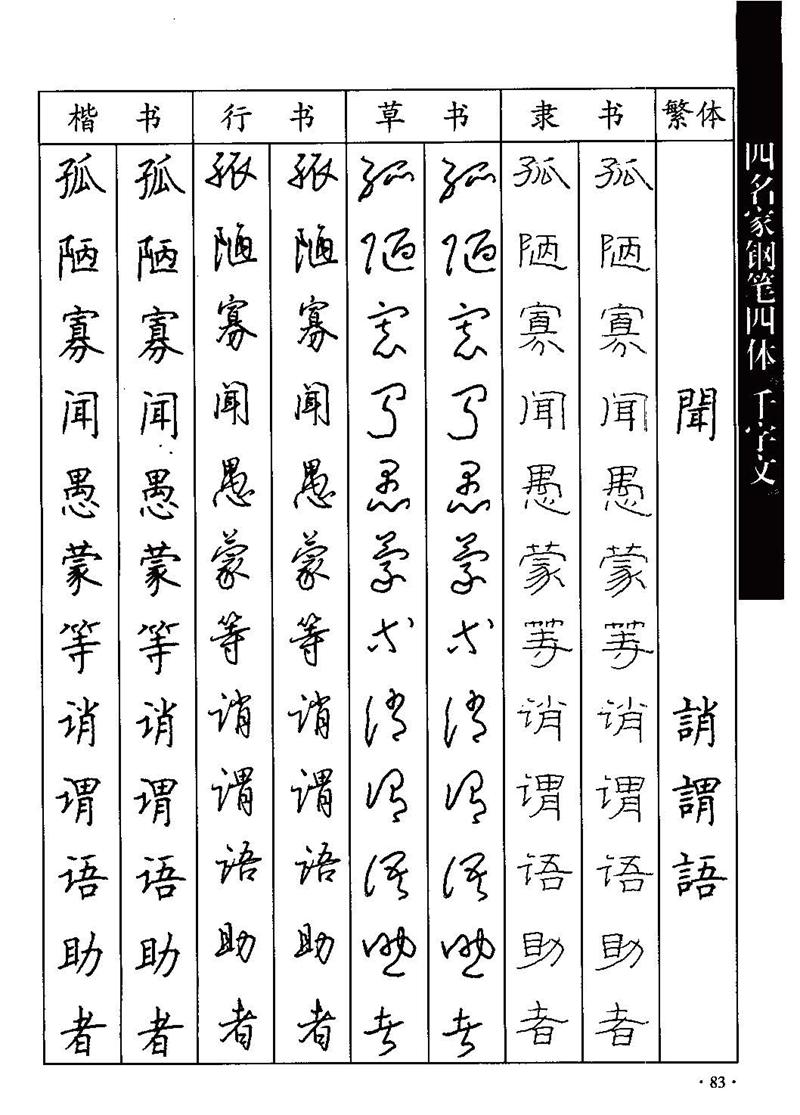 楷书 行书 草书 隶书 繁体
孤 孤 孤 孤 孤 孤 孤 孤
陋 陋 陋 陋 陋 陋 陋 陋
寡 寡 寡 寡 寡 寡 寡 寡
闻 闻 闻 闻 闻 闻 闻 闻 聞
愚 愚 愚 愚 愚 愚 愚 愚
蒙 蒙 蒙 蒙 蒙 蒙 蒙 蒙
等 等 等 等 等 等 等 等
诮 诮 诮 诮 诮 诮 诮 诮 誚
谓 谓 谓 谓 谓 谓 谓 谓 謂
语 语 语 语 语 语 语 语 語
助 助 助 助 助 助 助 助
者 者 者 者 者 者 者 者
四名家钢笔四体 千字文
·83·